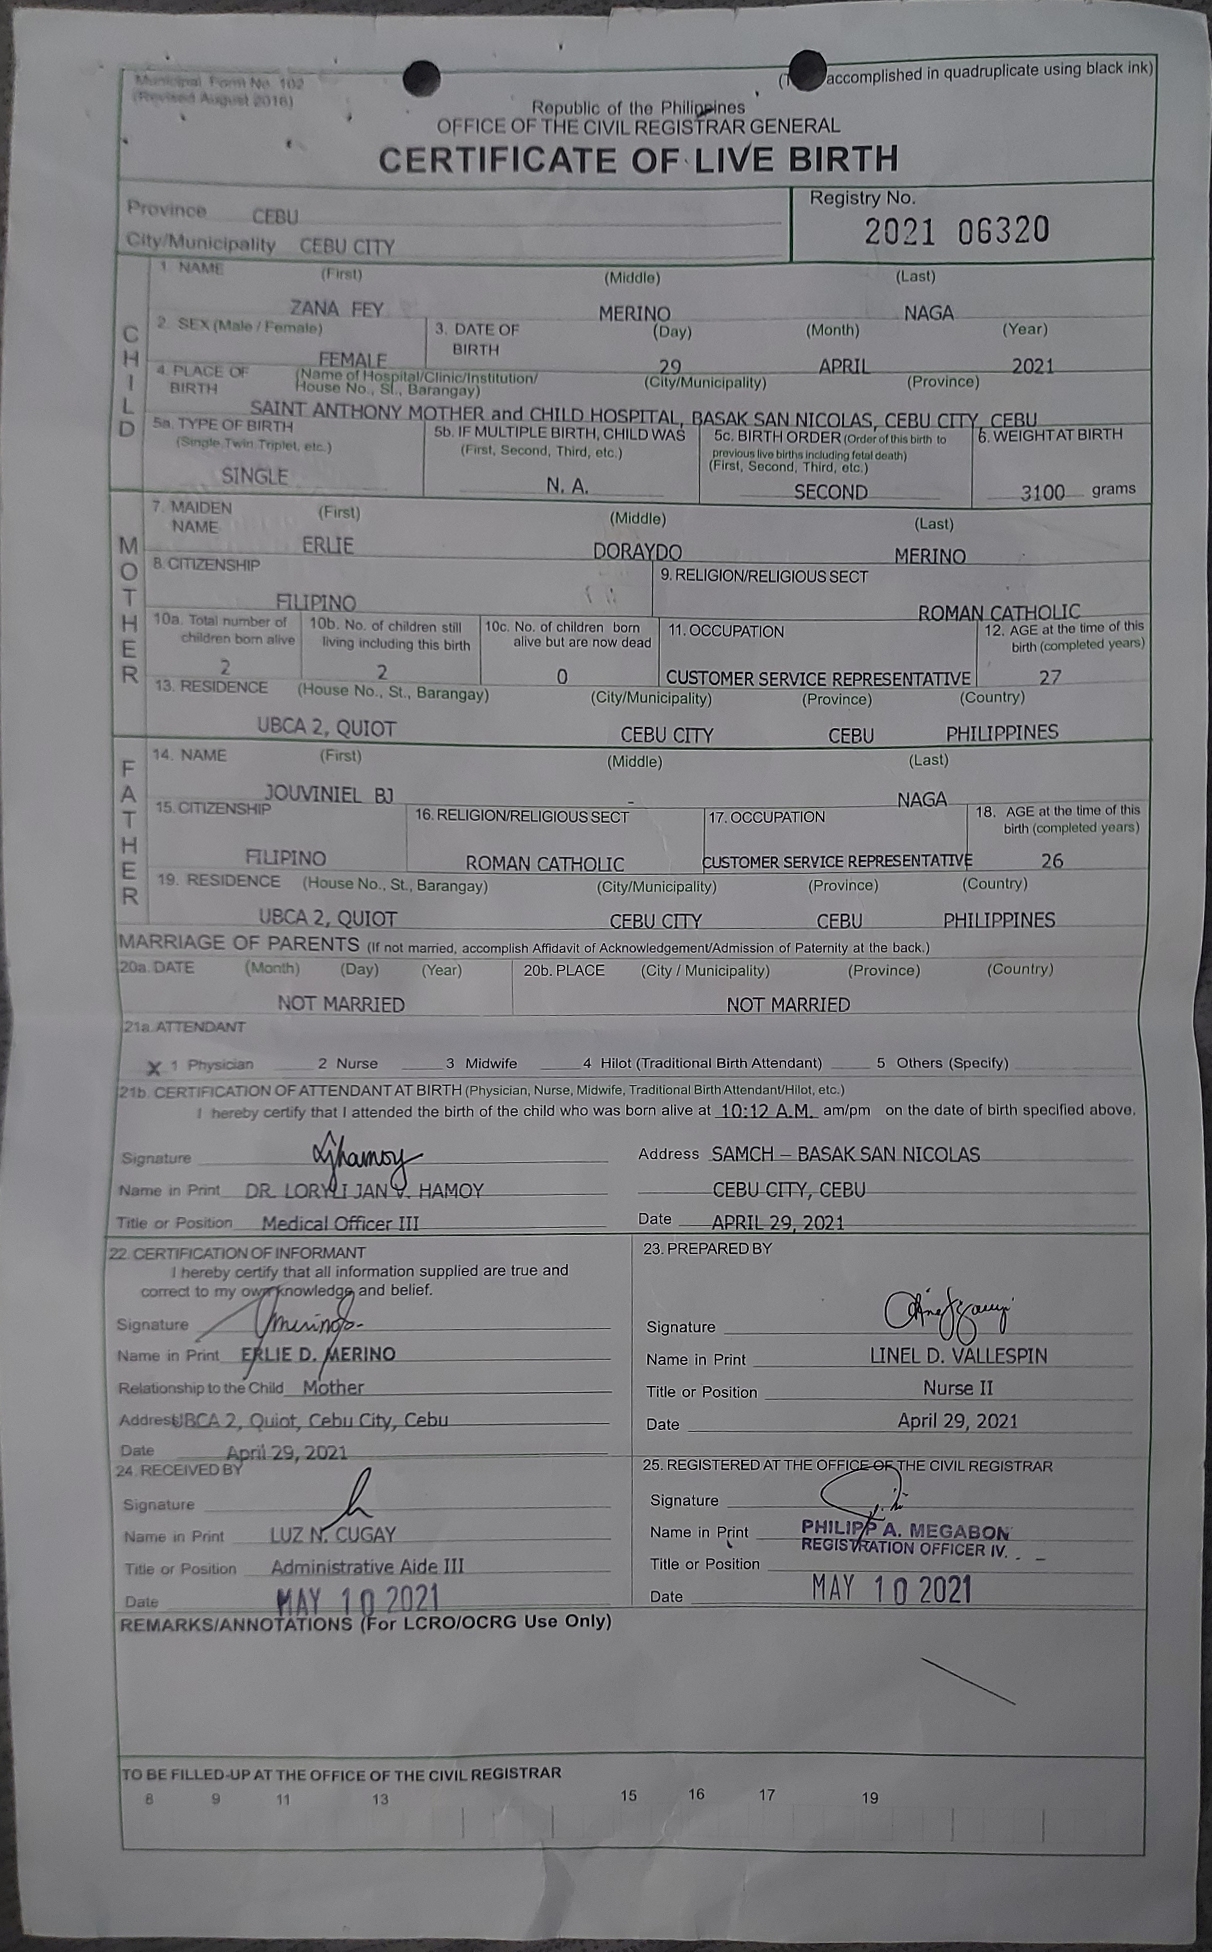 Municipal Form No. 102
(Revised August 2016)
accomplished in quadruplicate using black ink)
Republic of the Philippines
OFFICE OF THE CIVIL REGISTRAR GENERAL
CERTIFICATE OF LIVE BIRTH
Province CEBU
City/Municipality CEBU CITY
Registry No.
2021 06320
CHILD
1. NAME (First) (Middle) (Last)
ZANA FEY MERINO NAGA
2. SEX (Male / Female) 3. DATE OF BIRTH (Day) (Month) (Year)
FEMALE 29 APRIL 2021
4. PLACE OF BIRTH (Name of Hospital/Clinic/Institution/ House No., St., Barangay) (City/Municipality) (Province)
SAINT ANTHONY MOTHER and CHILD HOSPITAL, BASAK SAN NICOLAS, CEBU CITY, CEBU
5a. TYPE OF BIRTH (Single, Twin, Triplet, etc.) 5b. IF MULTIPLE BIRTH, CHILD WAS (First, Second, Third, etc.) 5c. BIRTH ORDER (Order of this birth to previous live births including fetal death) (First, Second, Third, etc.) 6. WEIGHT AT BIRTH
SINGLE N. A. SECOND 3100 grams
MOTHER
7. MAIDEN NAME (First) (Middle) (Last)
ERLIE DORAYDO MERINO
8. CITIZENSHIP 9. RELIGION/RELIGIOUS SECT
FILIPINO ROMAN CATHOLIC
10a. Total number of children born alive 10b. No. of children still living including this birth 10c. No. of children born alive but are now dead 11. OCCUPATION 12. AGE at the time of this birth (completed years)
2 2 0 CUSTOMER SERVICE REPRESENTATIVE 27
13. RESIDENCE (House No., St., Barangay) (City/Municipality) (Province) (Country)
UBCA 2, QUIOT CEBU CITY CEBU PHILIPPINES
FATHER
14. NAME (First) (Middle) (Last)
JOUVINIEL BJ - NAGA
15. CITIZENSHIP 16. RELIGION/RELIGIOUS SECT 17. OCCUPATION 18. AGE at the time of this birth (completed years)
FILIPINO ROMAN CATHOLIC CUSTOMER SERVICE REPRESENTATIVE 26
19. RESIDENCE (House No., St., Barangay) (City/Municipality) (Province) (Country)
UBCA 2, QUIOT CEBU CITY CEBU PHILIPPINES
MARRIAGE OF PARENTS (If not married, accomplish Affidavit of Acknowledgement/Admission of Paternity at the back.)
20a. DATE (Month) (Day) (Year) 20b. PLACE (City / Municipality) (Province) (Country)
NOT MARRIED NOT MARRIED
21a. ATTENDANT
X 1 Physician 2 Nurse 3 Midwife 4 Hilot (Traditional Birth Attendant) 5 Others (Specify)
21b. CERTIFICATION OF ATTENDANT AT BIRTH (Physician, Nurse, Midwife, Traditional Birth Attendant/Hilot, etc.)
I hereby certify that I attended the birth of the child who was born alive at 10:12 A.M. am/pm on the date of birth specified above.
Signature Address SAMCH – BASAK SAN NICOLAS
Name in Print DR. LORYLI JAN V. HAMOY CEBU CITY, CEBU
Title or Position Medical Officer III Date APRIL 29, 2021
22. CERTIFICATION OF INFORMANT
I hereby certify that all information supplied are true and
correct to my own knowledge and belief.
Signature
Name in Print ERLIE D. MERINO
Relationship to the Child Mother
Address UBCA 2, Quiot, Cebu City, Cebu
Date April 29, 2021
23. PREPARED BY
Signature
Name in Print LINEL D. VALLESPIN
Title or Position Nurse II
Date April 29, 2021
24. RECEIVED BY
Signature
Name in Print LUZ N. CUGAY
Title or Position Administrative Aide III
Date MAY 10 2021
25. REGISTERED AT THE OFFICE OF THE CIVIL REGISTRAR
Signature
Name in Print PHILIPP A. MEGABON
REGISTRATION OFFICER IV
Title or Position
Date MAY 10 2021
REMARKS/ANNOTATIONS (For LCRO/OCRG Use Only)
TO BE FILLED-UP AT THE OFFICE OF THE CIVIL REGISTRAR
8 9 11 13 15 16 17 19